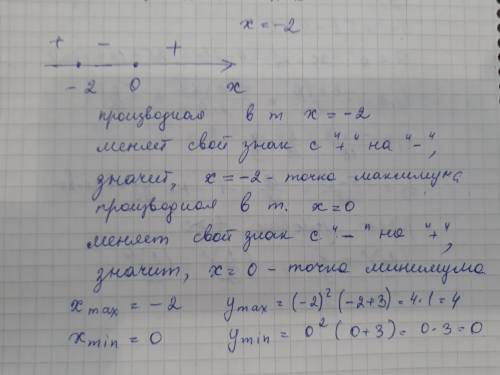 x = -2
+ - +
-2 0 x
производная в т x = -2
меняет свой знак с "+" на "-",
значит, x = -2 - точка максимума
производная в т. x = 0
меняет свой знак с "-" на "+",
значит, x = 0 - точка минимума
x max = -2 y max = (-2)² (-2+3) = 4·1 = 4
x min = 0 y min = 0² (0+3) = 0·3 = 0